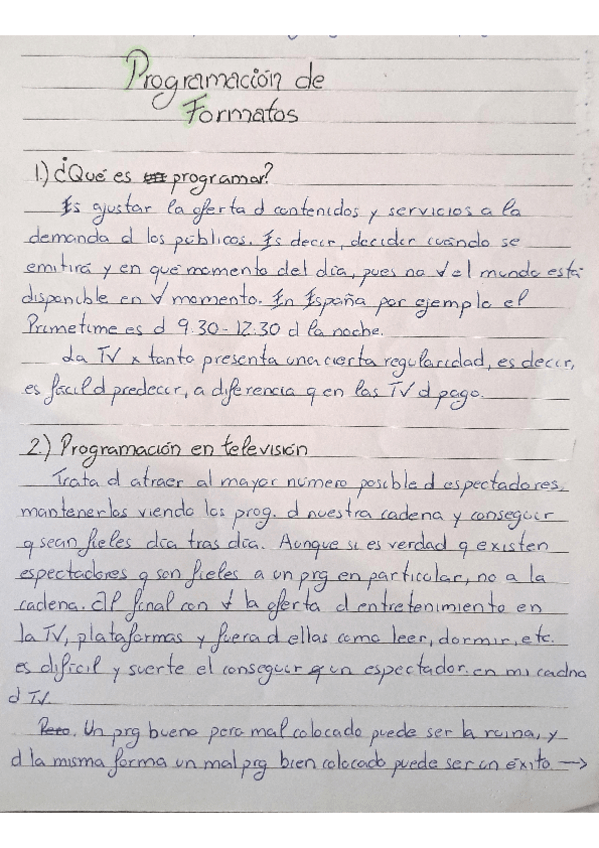 Programación de
Formatos
1.) ¿Qué es programar?
Es ajustar la oferta d contenidos y servicios a la
demanda d los públicos. Es decir, decidir cuándo se
emitirá y en qué momento del día, pues no ∀ el mundo está
disponible en ∀ momento. En España por ejemplo el
Primetime es d 9.30-12.30 d la noche.
La TV x tanto presenta una cierta regularidad, es decir,
es fácil d predecir, a diferencia q en las TV d pago.
2.) Programación en televisión
Trata d atraer al mayor número posible d espectadores,
mantenerlos viendo los prog. d nuestra cadena y conseguir
q sean fieles día tras día. Aunque si es verdad q existen
espectadores q son fieles a un prg en particular, no a la
cadena. Al final con ∀ la oferta d entretenimiento en
la TV, plataformas y fuera d ellas como leer, dormir, etc.
es difícil y suerte el conseguir q un espectador en mi cadna
d TV.
Pero. Un prg bueno pero mal colocado puede ser la ruina, y
d la misma forma un mal prg bien colocado puede ser un éxito →